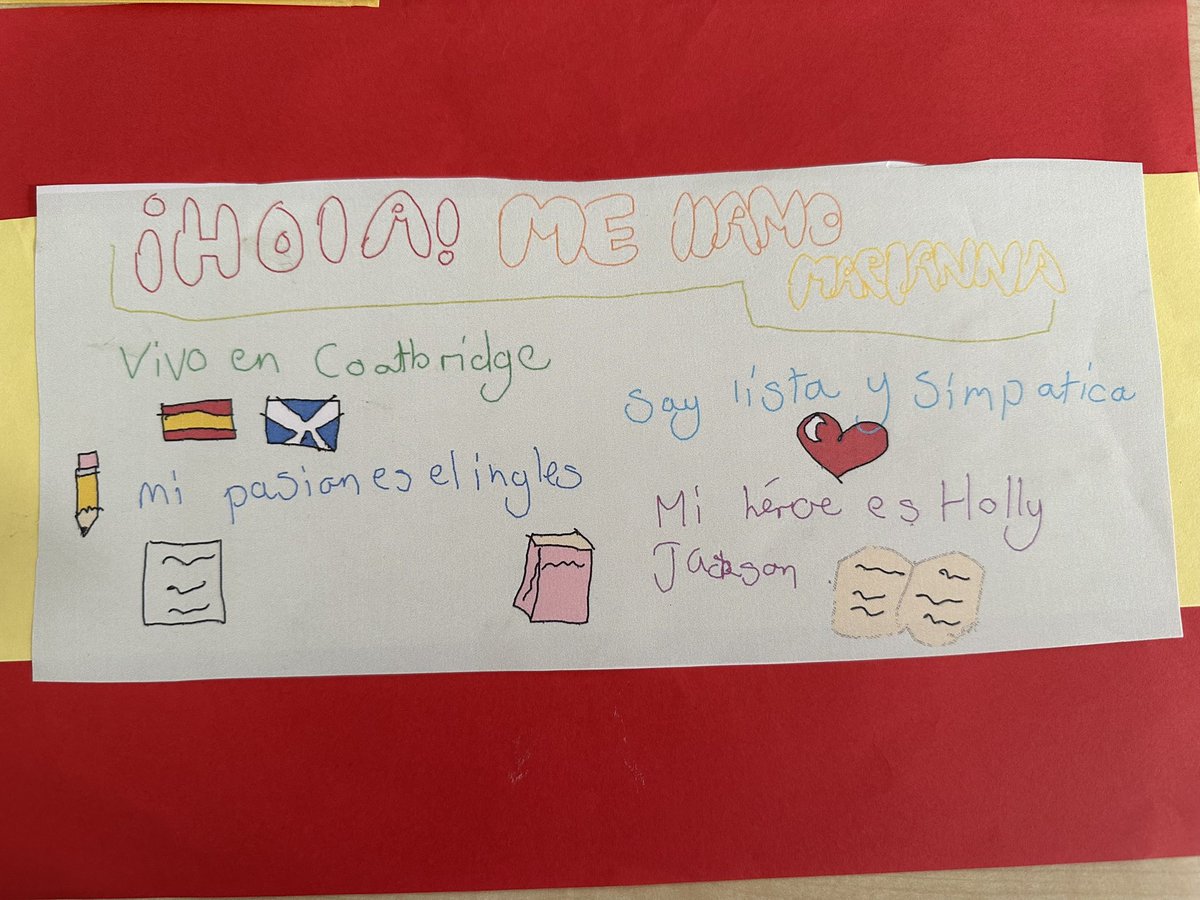 ¡HOlA! ME llAMO
MARIANNA
Vivo en Coatbridge
Soy lista y simpatica
mi pasion es el ingles
Mi héroe es Holly
Jackson